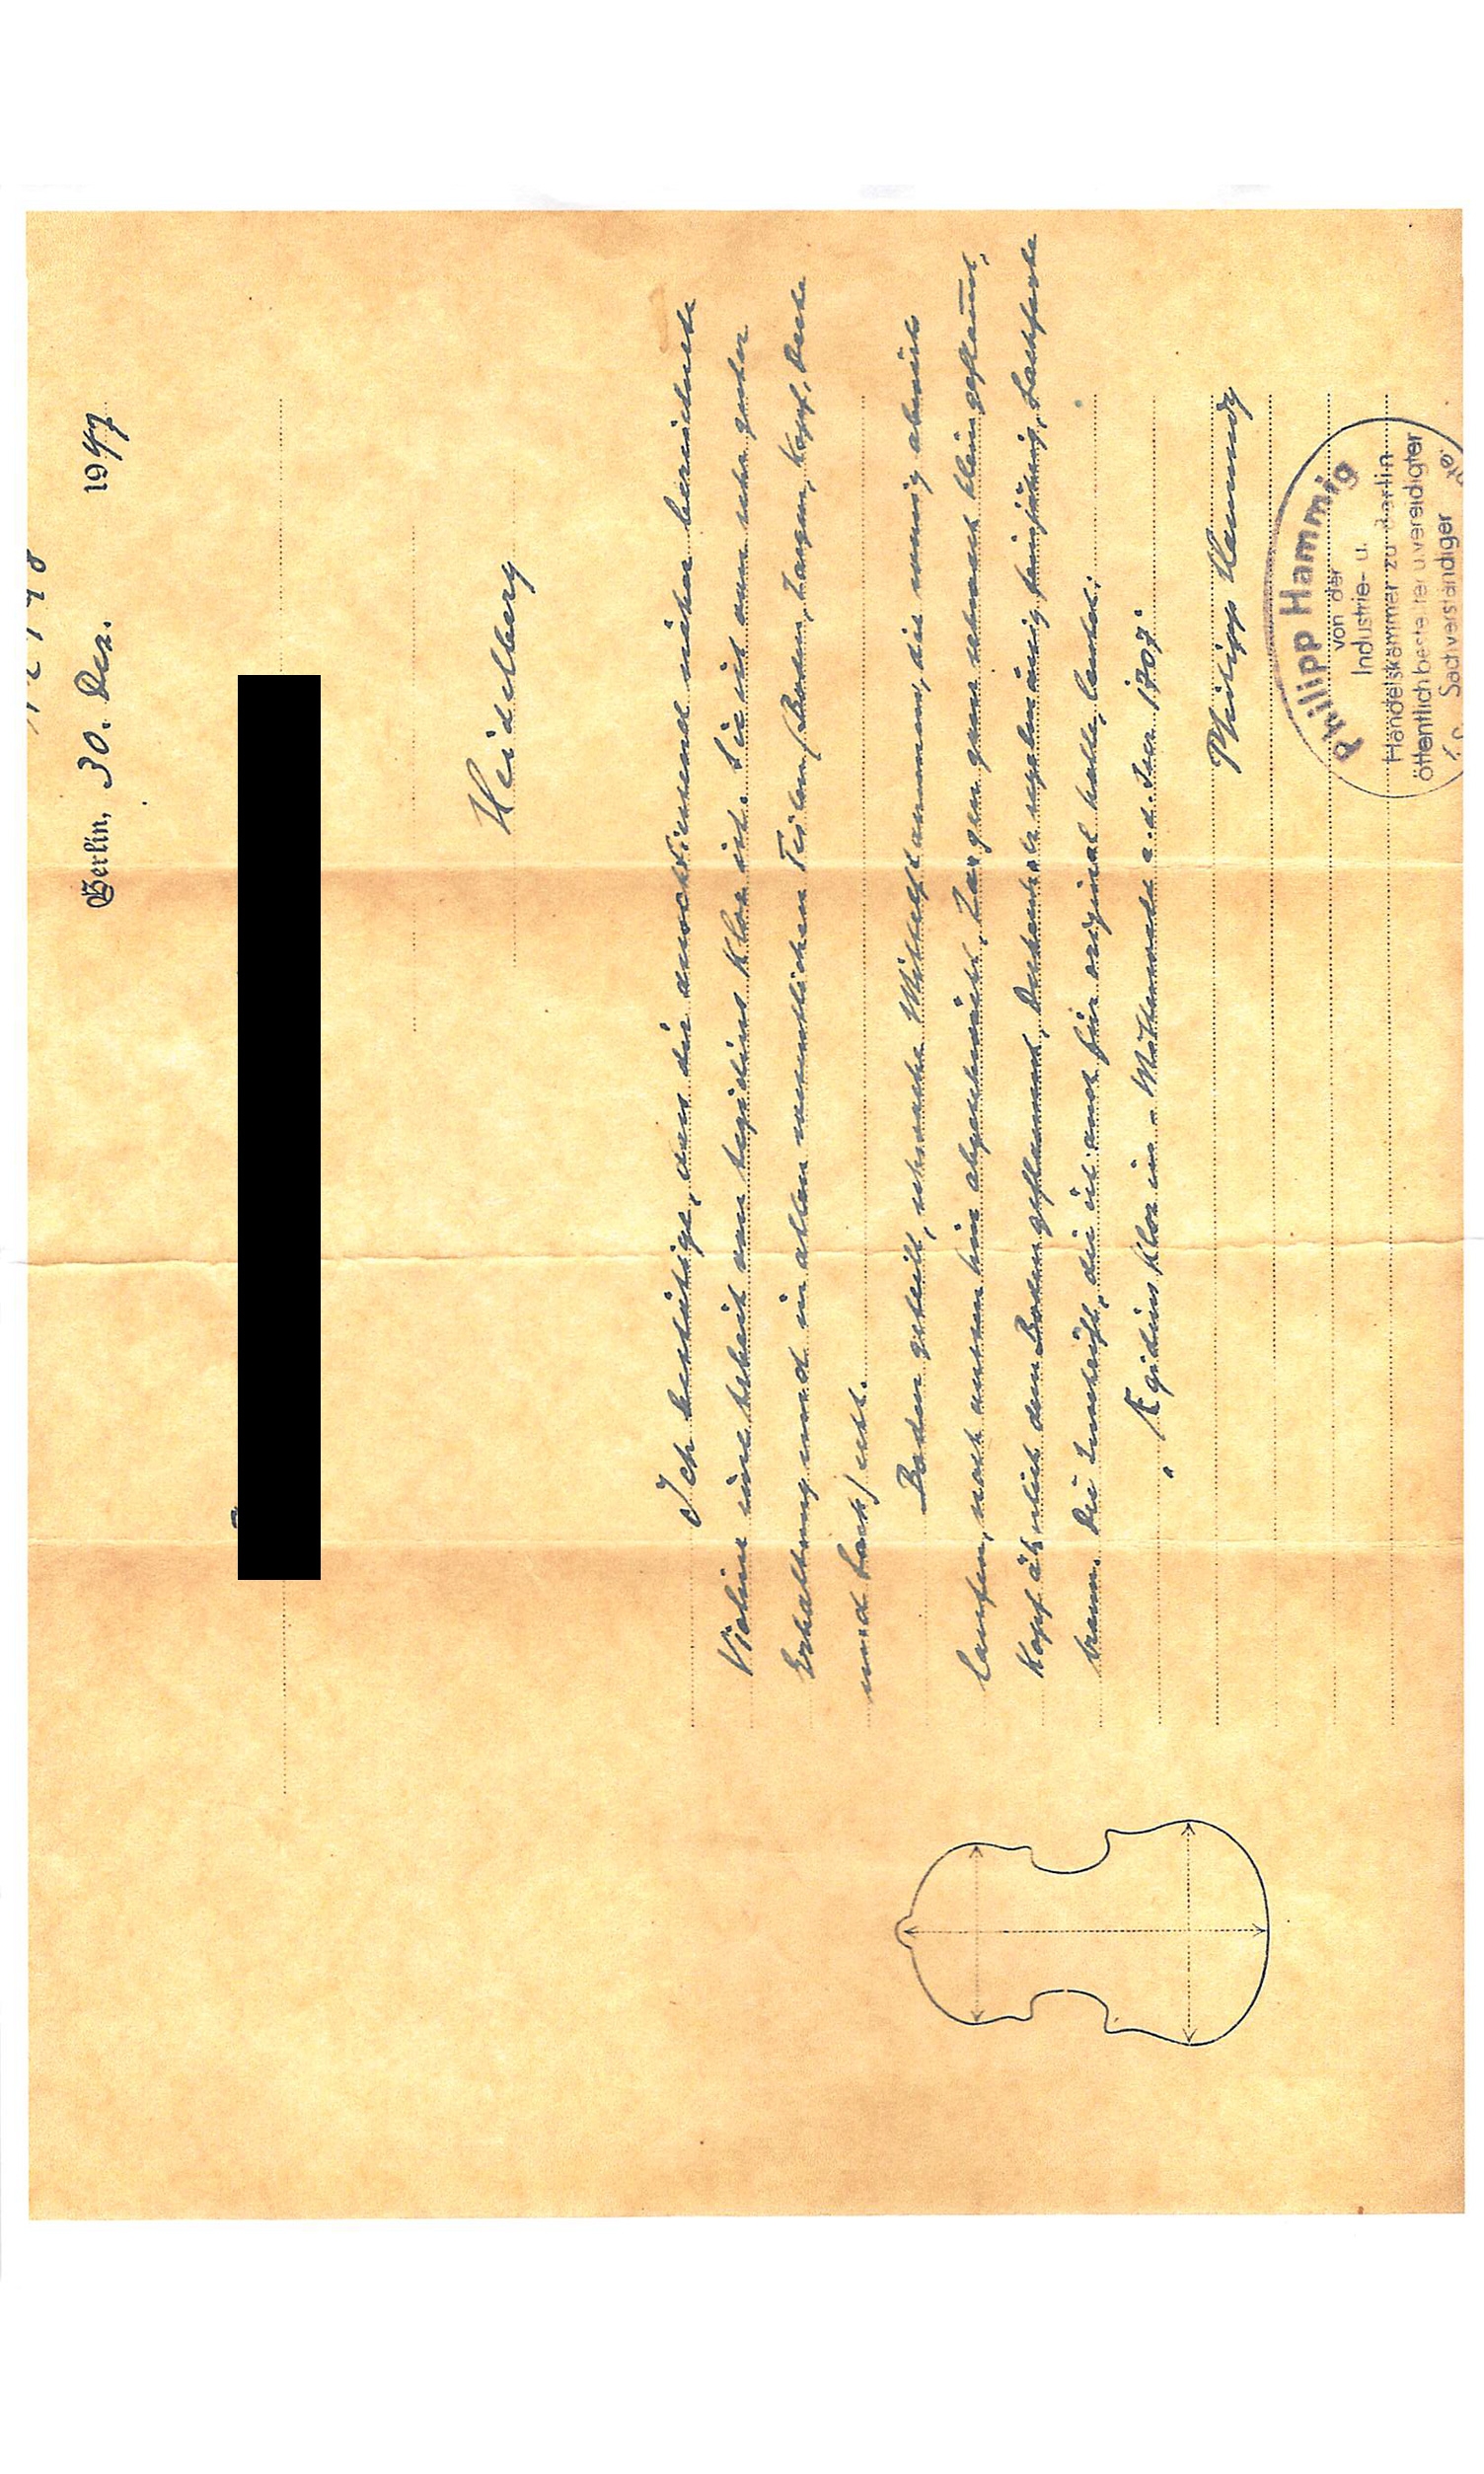 Berlin, 30. Dez. 1947
Heidelberg
Ich bestätige, dass die umstehend näher bezeichnete
Violine eine Arbeit von Aegidius Kloz ist. Sie ist von sehr guter
Erhaltung und in allen wesentlichen Teilen (Boden, Zargen, Kopf, Decke
und Lack) echt.
Boden geteilt, schwache Mittelflammen, die wenig abwärts
laufen, nach aussen hin abgeschwächt, Zargen ganz schwach klein geflammt,
Kopf ähnlich dem Boden geflammt, Deckenholz regelmässig feinjährig, Lackfarbe
braun. Die Inschrift, die ich auch für original halte, lautet:
„Egidius Kloz in Mittenwald a. d. Iser 1707."
Philipp Hammig
Philipp Hammig
von der
Industrie- u.
Handelskammer zu Berlin
öffentlich bestellter u. vereidigter
Sachverständiger